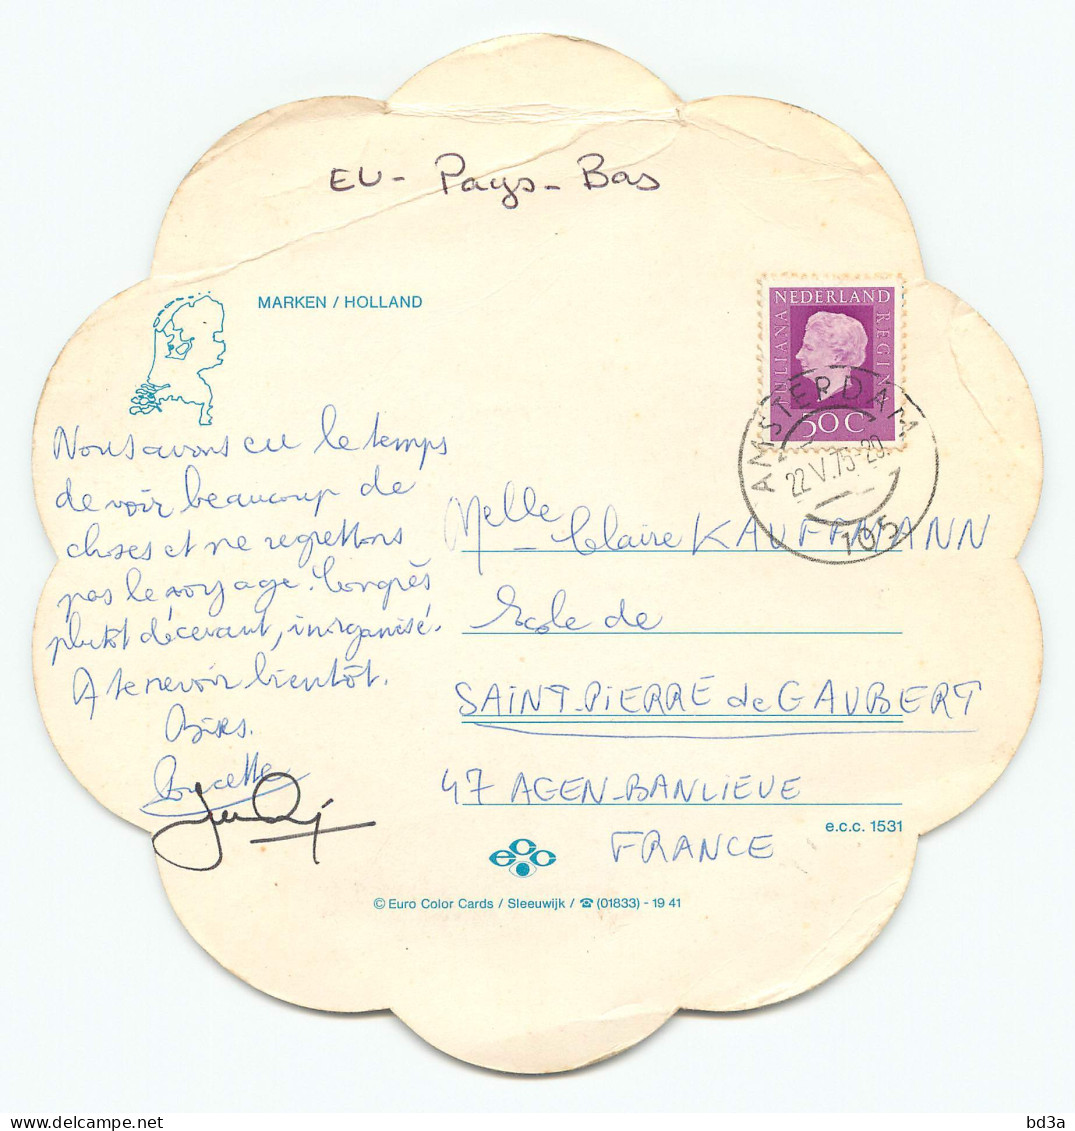 EU - Pays - Bas
MARKEN / HOLLAND
NEDERLAND
JULIANA REGINA
50 C
AMSTERDAM
22.V.75-20
195
Nous avons eu le temps
de voir beaucoup de
choses et ne regrettons
pas le voyage. Congrès
plutôt décevant, inorganisé.
A te revoir bientôt.
Bises.
Melle Claire KAUFFMANN
Ecole de
SAINT-PIERRE de GAUBERT
47 AGEN-BANLIEUE
FRANCE
e.c.c. 1531
ecc
© Euro Color Cards / Sleeuwijk / ☎ (01833) - 19 41
bd3a